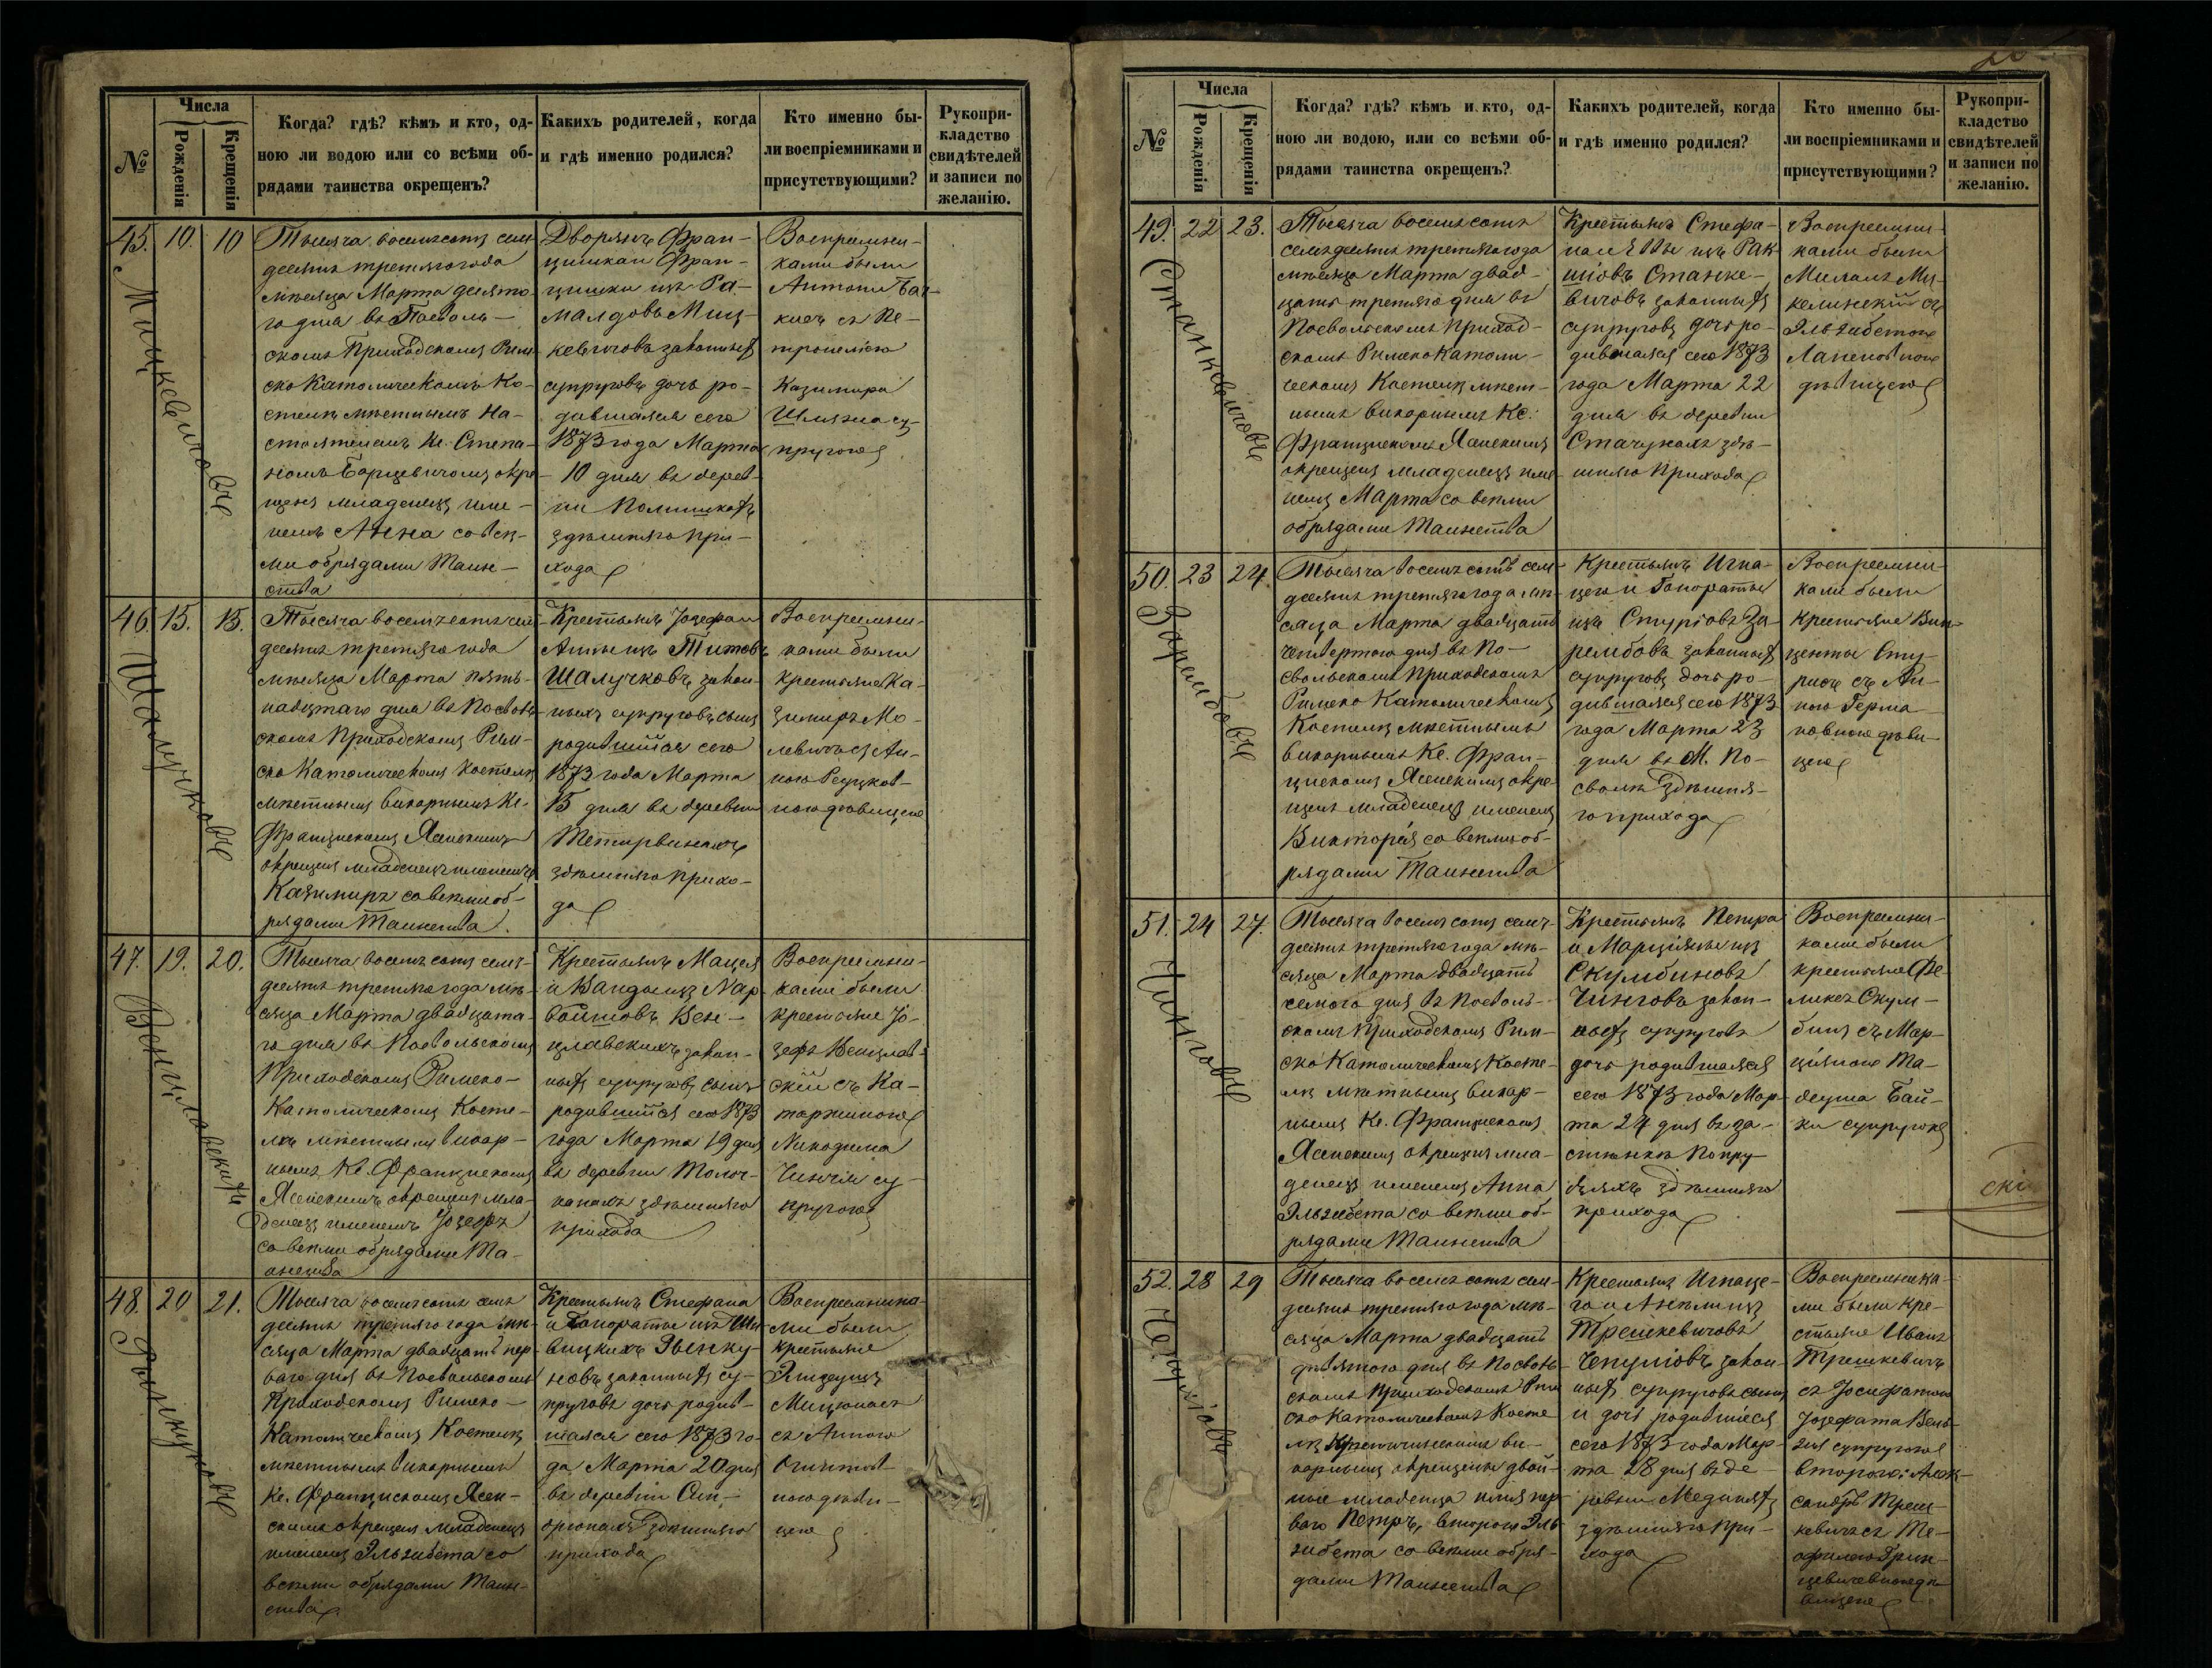 №
Числа
Рожденія
Крещенія
Когда? гдѣ? кѣмъ и кто, од-
ною ли водою или со всѣми об-
рядами таинства окрещенъ?
Какихъ родителей, когда
и гдѣ именно родился?
Кто именно бы-
ли воспріемниками и
присутствующими?
Рукопри-
кладство
свидѣтелей
и записи по
желанію.
45. 10. 10
Мицкевичовъ
Тысяча восемсотъ семь-
десятъ третяго года
мѣсяца Марта десято-
го дня въ Посволь-
скомъ Приходскомъ Рим-
ско Католическомъ Ко-
стелѣ мѣстнымъ На-
стоятелемъ Кс. Степа-
номъ Барцевичомъ окре-
щенъ младенецъ име-
немъ Анна со всѣ-
ми обрядами Таин-
ства
Дворянъ Фран-
цишка и Фран-
цишки изъ Ра-
малдовъ Миц-
кевичовъ законныхъ
супруговъ дочь ро-
дившаяся сего
1873 года Марта
10 дня въ дерев-
ни
здѣшняго при-
хода
Воспреемни-
ками были
Антони
съ Пе-
тронелею
Казимира
су-
пругою
46. 15. 15.
Шалучковъ
Тысяча восемьсотъ семь-
десятъ третяго года
мѣсяца Марта пять-
надцтаго дня въ Посволь-
скомъ Приходскомъ Рим-
ско Католическомъ Костелѣ
мѣстнымъ викарнымъ Кс.
Францискомъ Ясенскимъ
окрещенъ младенецъ именемъ
Казимиръ со всѣми об-
рядами Таинства.
Крестьянъ Іозефа и
Анны изъ Титовъ
Шалучковъ закон-
ныхъ супруговъ сынъ
родившійся сего
1873 года Марта
15 дня въ деревни
Тетирвинахъ
здѣшняго прихо-
да
Воспреемни-
ками были
крестьяне Ка-
зимиръ
съ Ан-
ною
ною дѣвицею
47. 19. 20.
Венцлавскихъ
Тысяча восемъ сотъ семь-
десятъ третяго года мѣ-
сяца Марта двадцата-
го дня въ Посвольскомъ
Приходскомъ Римско-
Католическомъ Косте-
лѣ мѣстнымъ викар-
нымъ Кс. Францискомъ
Ясенскимъ окрещенъ мла-
денецъ именемъ Іозефъ
со всѣми обрядами Та-
инства
Крестьянъ Мацея
и Ванды изъ Нар-
Вен-
цлавскихъ закон-
ныхъ супруговъ сынъ
родившійся сего 1873
года Марта 19 дня
въ деревни
здѣшняго
прихода
Воспреемни-
ками были
крестьяне Іо-
зефъ Венцлав-
скій съ Ка-
таржиною
Никодима
су-
пругою
48. 20 21.
Тысяча восемсотъ семь
десятъ третяго года мѣ-
сяца Марта двадцать пер-
ваго дня въ Посвольскомъ
Приходскомъ Римско-
Католическомъ Костелѣ
мѣстнымъ викарнымъ
Кс. Францискомъ Ясен-
скимъ окрещенъ младенецъ
именемъ Эльзибета со
всѣми обрядами Таин-
ства
Крестьянъ Стефана
и Гонораты изъ
законныхъ су-
пруговъ дочь родив-
шаяся сего 1873 го-
да Марта 20 дня
въ деревни
здѣшняго
прихода
Воспреемника-
ми были
крестьяне
съ Анною
ною дѣви-
цею
№
Числа
Рожденія
Крещенія
Когда? гдѣ? кѣмъ и кто, од-
ною ли водою, или со всѣми об-
рядами таинства окрещенъ?
Какихъ родителей, когда
и гдѣ именно родился?
Кто именно бы-
ли воспріемниками и
присутствующими?
Рукопри-
кладство
свидѣтелей
и записи по
желанію.
49. 22 23.
Станкевичовъ
Тысяча восемь сотъ
семьдесятъ третяго года
мѣсяца Марта двад-
цать третяго дня въ
Посвольскомъ Приход-
скомъ Римско Католи-
ческомъ Костелѣ мѣст-
нымъ викарнымъ Кс.
Францискомъ Ясенскимъ
окрещенъ младенецъ име-
немъ Марта со всѣми
обрядами Таинства
Крестьянъ Стефа-
на и Евы изъ Рак-
Станке-
вичовъ законныхъ
супруговъ дочь ро-
дившаяся сего 1873
года Марта 22
дня въ деревни
Стачунахъ здѣ-
шняго Прихода
Воспреемни-
ками были
съ
Эльзибетою
дѣвицею
50. 23 24.
Зарембовъ
Тысяча восемь сотъ семь-
десятъ третяго года мѣ-
сяца Марта двадцать
четвертого дня въ По-
свольскомъ Приходскомъ
Римско Католическомъ
Костелѣ мѣстнымъ
викарнымъ Кс. Фран-
цискомъ Ясенскимъ окре-
щенъ младенецъ именемъ
Викторія со всѣми об-
рядами Таинства
Крестьянъ Игна-
цего и Гонораты
изъ Стурговъ За-
рембовъ законныхъ
супруговъ дочь ро-
дившаяся сего 1873
года Марта 23
дня въ М. По-
сволѣ здѣшня-
го прихода
Воспреемни-
ками были
крестьяне Вин-
центы Сту-
съ Ан-
ною Герма-
новною дѣви-
цею
51. 24 27.
Чинговъ
Тысяча восемь сотъ семь-
десятъ третяго года мѣ-
сяца Марта двадцать
семого дня въ Посволь-
скомъ Приходскомъ Рим-
ско Католическомъ Косте-
лѣ мѣстнымъ викар-
нымъ Кс. Францискомъ
Ясенскимъ окрещенъ мла-
денецъ именемъ Анна
Эльзибета со всѣми об-
рядами Таинства
Крестьянъ Петра
и Марціяны изъ
Скумбиновъ
Чинговъ закон-
ныхъ супруговъ
дочь родившаяся
сего 1873 года Мар-
та 24 дня въ за-
стѣнкѣ
здѣшняго
прихода
Воспреемни-
ками были
крестьяне Фе-
ликсъ Скум-
бинъ съ Мар-
ціяною Та-
деуша Бай-
ки супругою
скі
52. 28 29
Чепулісвъ
Тысяча восемь сотъ семь-
десятъ третяго года мѣ-
сяца Марта двадцать
девятого дня въ Посволь-
скомъ Приходскомъ Рим
ско Католическомъ Косте
лѣ ви-
карнымъ окрещены двой-
ные младенца имя пер-
ваго Петръ, второго Эль-
зибета со всѣми обря-
дами Таинства
Крестьянъ Игнаце-
го и Анѣли изъ
Трешкевичовъ
закон-
ныхъ супруговъ сынъ
и дочь родившіеся
сего 1873 года Мар-
та 28 дня въ де-
ревни
здѣшняго При-
хода
Воспреемника-
ми были кре-
стьяне Иванъ
Трешкевичъ
съ Іосифатою
Іозефата
супругою
второго: Алек-
сандръ Треш-
кевичъ съ Те-
офилею Грин-
цевичевною дѣ-
вицею